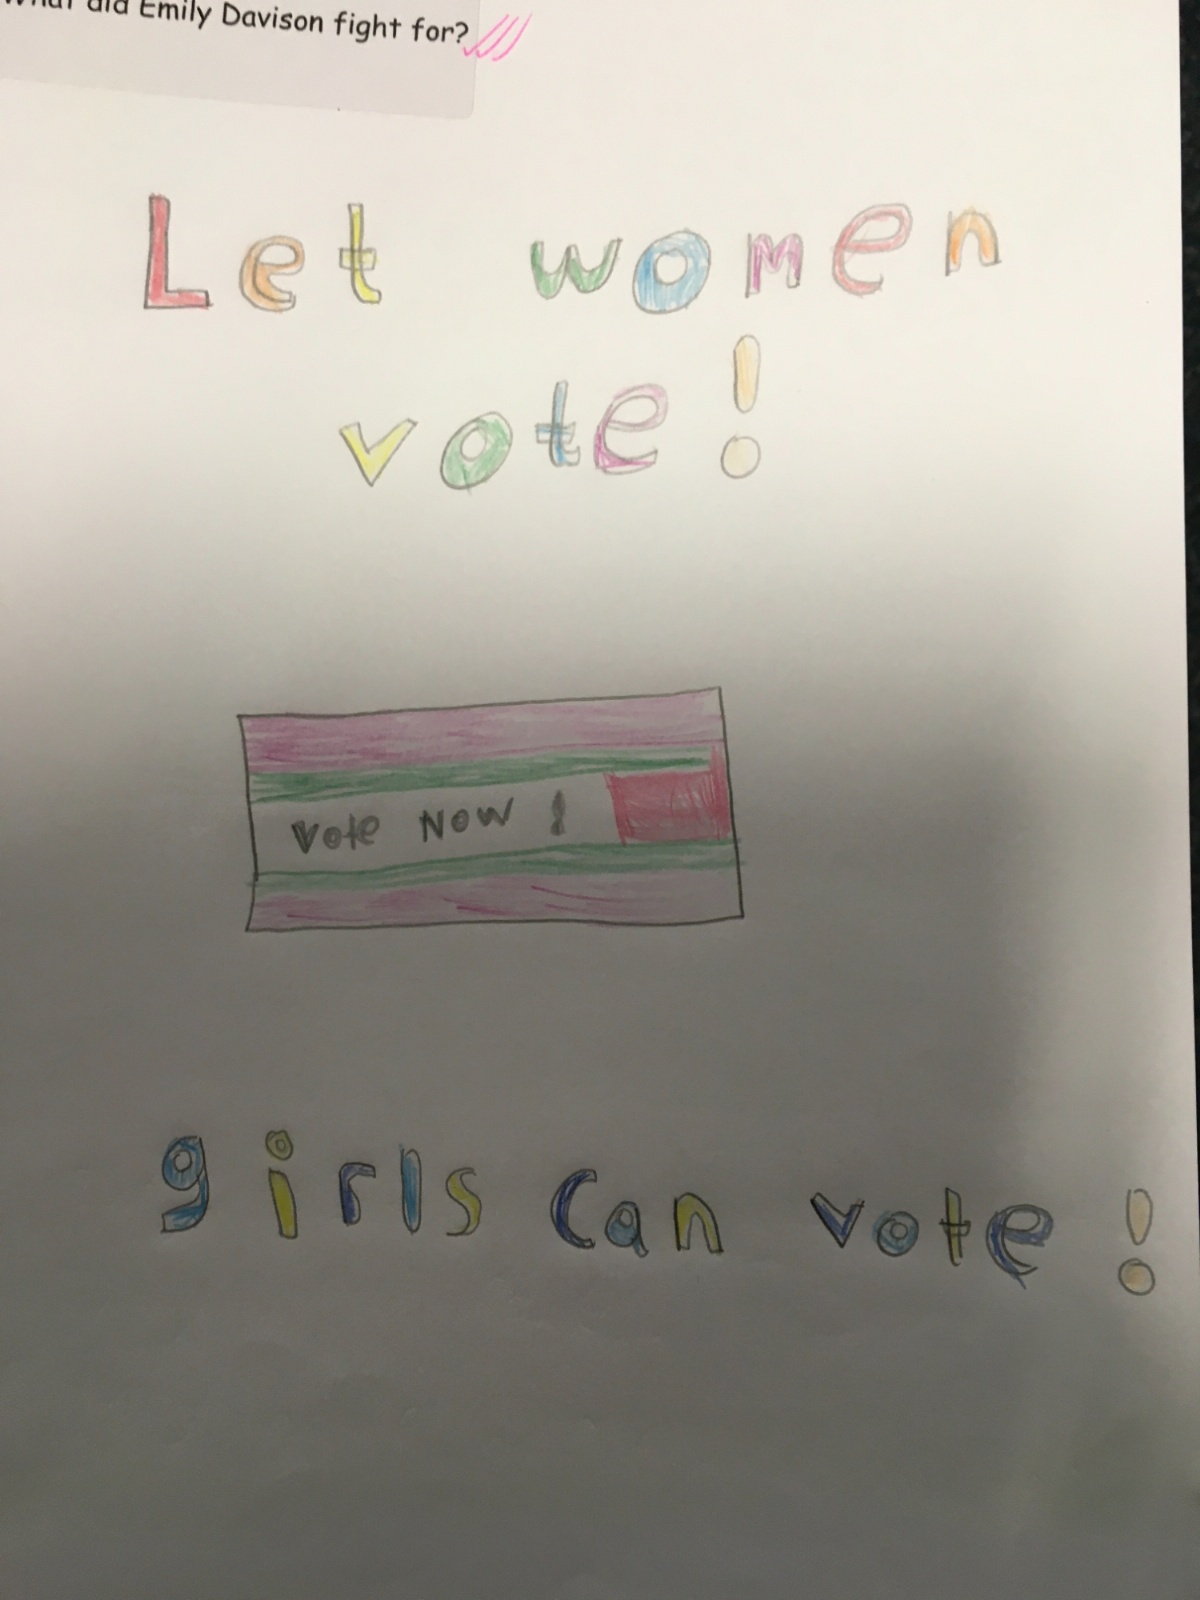 What did Emily Davison fight for?
Let women
vote!
Vote Now!
girls can vote!